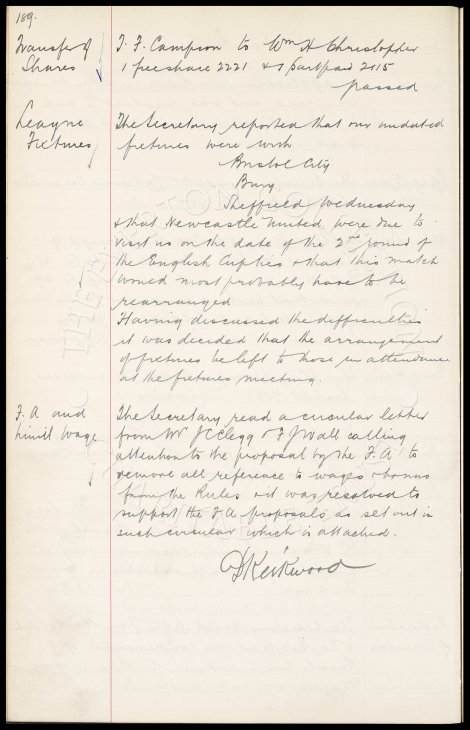 189.
Transfer of Shares
T. F. Campion to Wm H Christopher
1 free share 2221 & 1 partpaid 2115
passed
League Fixtures
The Secretary reported that our undated
fixtures were with
Bristol City
Bury
Sheffield Wednesday
& that Newcastle United were due to
visit us on the date of the 2nd round of
the English Cupties & that this match
would most probably have to be
rearranged
Having discussed the difficulties
it was decided that the arrangement
of fixtures be left to those in attendance
at the fixtures meeting.
F. A and
limit wage
The Secretary read a circular letter
from Mr J C Clegg & F J Wall calling
attention to the proposal by the F. A to
remove all reference to wages & bonus
from the Rules & it was resolved to
support the F A proposals as set out in
such circular which is attached.
D Kirkwood